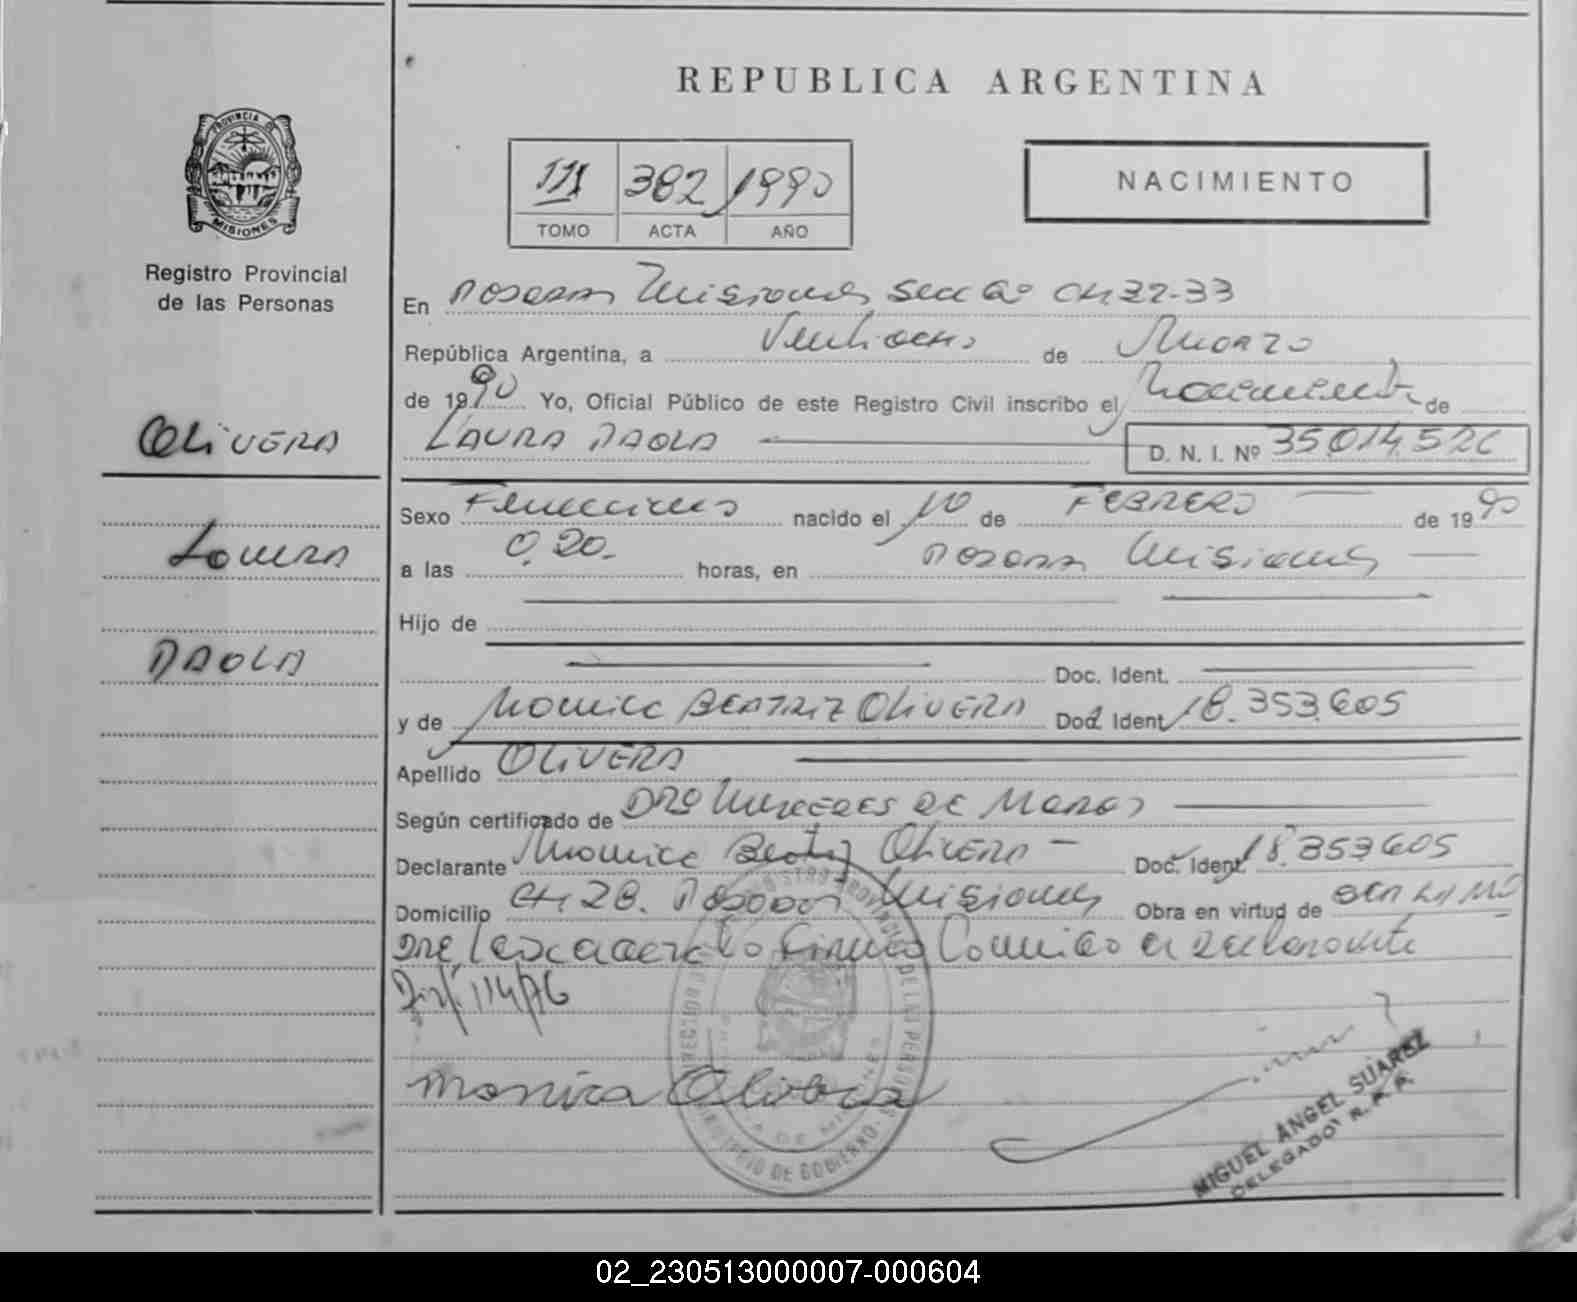 REPUBLICA ARGENTINA
PROVINCIA DE MISIONES
Registro Provincial
de las Personas
III 382 1990
TOMO ACTA AÑO
NACIMIENTO
OLIVERA
LAURA
PAOLA
En POSADAS Misiones Secc 6° CH 32-33
República Argentina, a Veintiocho de Marzo
de 1990 Yo, Oficial Público de este Registro Civil inscribo el Nacimiento de
LAURA PAOLA D. N. I. Nº 35.014.526
Sexo Femenino nacido el 10 de FEBRERO de 1990
a las 0,20. horas, en POSADAS Misiones
Hijo de
Doc. Ident.
y de Monica BEATRIZ OLIVERA Doc. Ident. 18.353.605
Apellido OLIVERA
Según certificado de DRA MERCEDES DE
Declarante Monica Beatriz Olivera Doc. Ident. 18.353.605
Domicilio CH. 28. Posadas Misiones Obra en virtud de SER LA MA
DRE Leida el acta la Firma Conmigo el declarante
114/76
Monica Olivera
MIGUEL ANGEL SUAREZ
DELEGADO R. P. P.
02_230513000007-000604